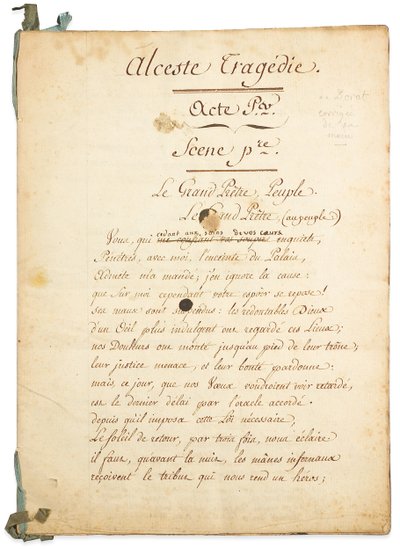 Alceste Tragédie.
Acte Per.
Scene pre.
de Dorat
corrigée
de sa
main
Le Grand Prêtre, Peuple.
Le Grand Prêtre (au peuple)
cedant aux soins de vos cœurs
Vous, qui me confiant vos inquiets,
Pénétrés, avec moi, l'enceinte du Palais,
Admete m'a mandé; j'en ignore la cause:
que sur moi cependant votre espoir se repose!
ses maux sont suspendus: les redoutables Dieux
d'un Oeil plus indulgent ont regardé ces Lieux;
nos Douleurs ont monté jusqu'au pied de leur trône;
leur justice menace, et leur bonté pardonne:
mais ce jour, que nos Vœux voudroient voir retardé,
est le dernier délai par l'oracle accordé.
depuis qu'il imposa cette Loi nécessaire,
Le soleil de retour, par trois fois, nous éclaire
il faut, qu'avant la nuit, les mânes infernaux
reçoivent le tribut qui nous rend un héros;